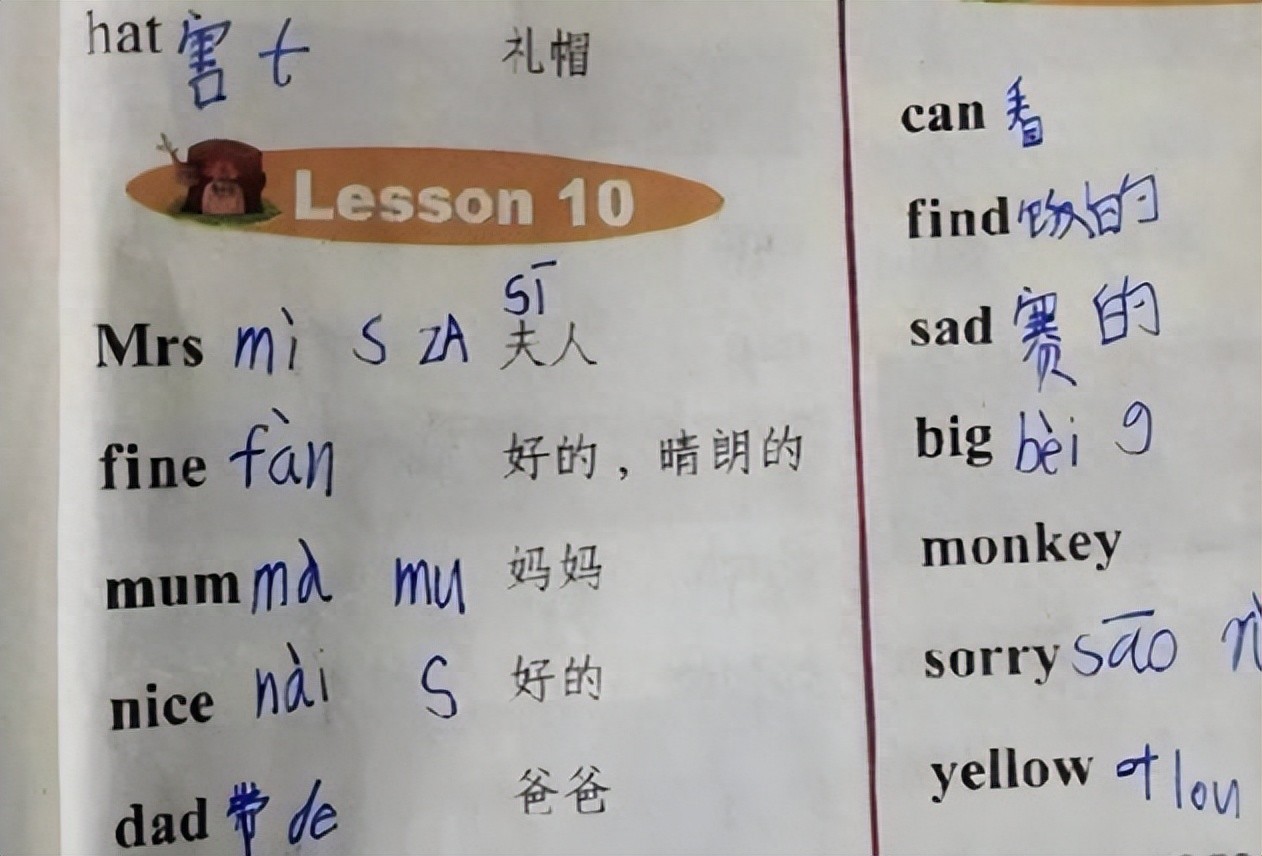 hat 害 t 礼帽
Lesson 10
sī
Mrs mì s zA 夫人
fine fàn 好的，晴朗的
mum mà mu 妈妈
nice nài s 好的
dad 带 de 爸爸
can 看
find 的
sad 赛 的
big bèi g
monkey
sorry sāo
yellow 叶 lou